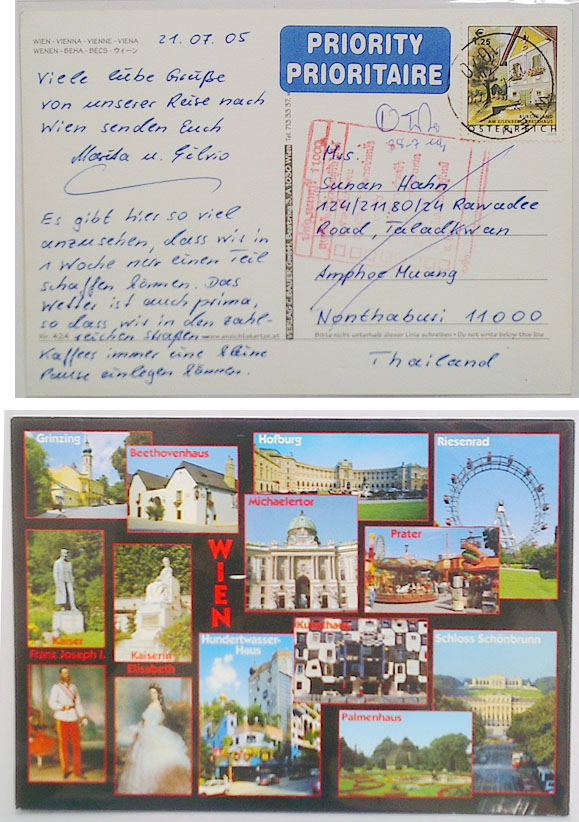 WIEN - VIENNA - VIENNE - VIENA
WENEN - BEHA - BÉCS - ウィーン
21.07.05
Viele liebe Grüße
von unserer Reise nach
Wien senden Euch
Marita u. Silvio
Es gibt hier so viel
anzusehen, dass wir in
1 Woche nur einen Teil
schaffen können. Das
Wetter ist auch prima,
so dass wir in den zahl-
reichen Straßen
Kaffees immer eine kleine
Pause einlegen können.
Nr. 424
www.ansichtskarten.at
PRIORITY
PRIORITAIRE
€ 1,25
BURGENLAND
ÖSTERREICH
Mrs.
Sunan Hahn
124/21180/24 Rawadee
Road, Taladkwan
Amphoe Muang
Nonthaburi 11000
Bitte nicht unterhalb dieser Linie schreiben • Do not write below this line
Thailand
Grinzing
Beethovenhaus
Hofburg
Riesenrad
Michaelertor
Prater
WIEN
Kaiser
Franz Joseph I.
Kaiserin
Elisabeth
Hundertwasser-
Haus
Kunsthaus
Schloss Schönbrunn
Palmenhaus